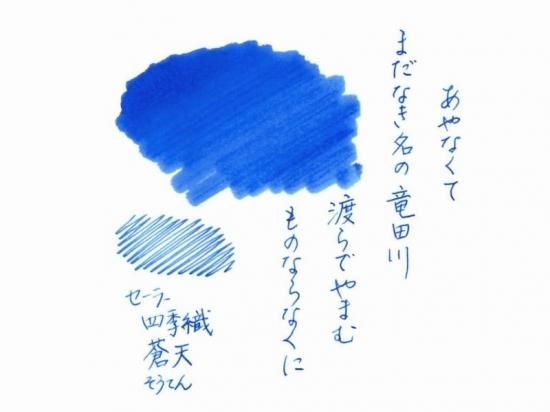 あやなくて
まだなき名の竜田川
渡らでやまむ
ものならなくに
セーラー
四季織
蒼天
そうてん